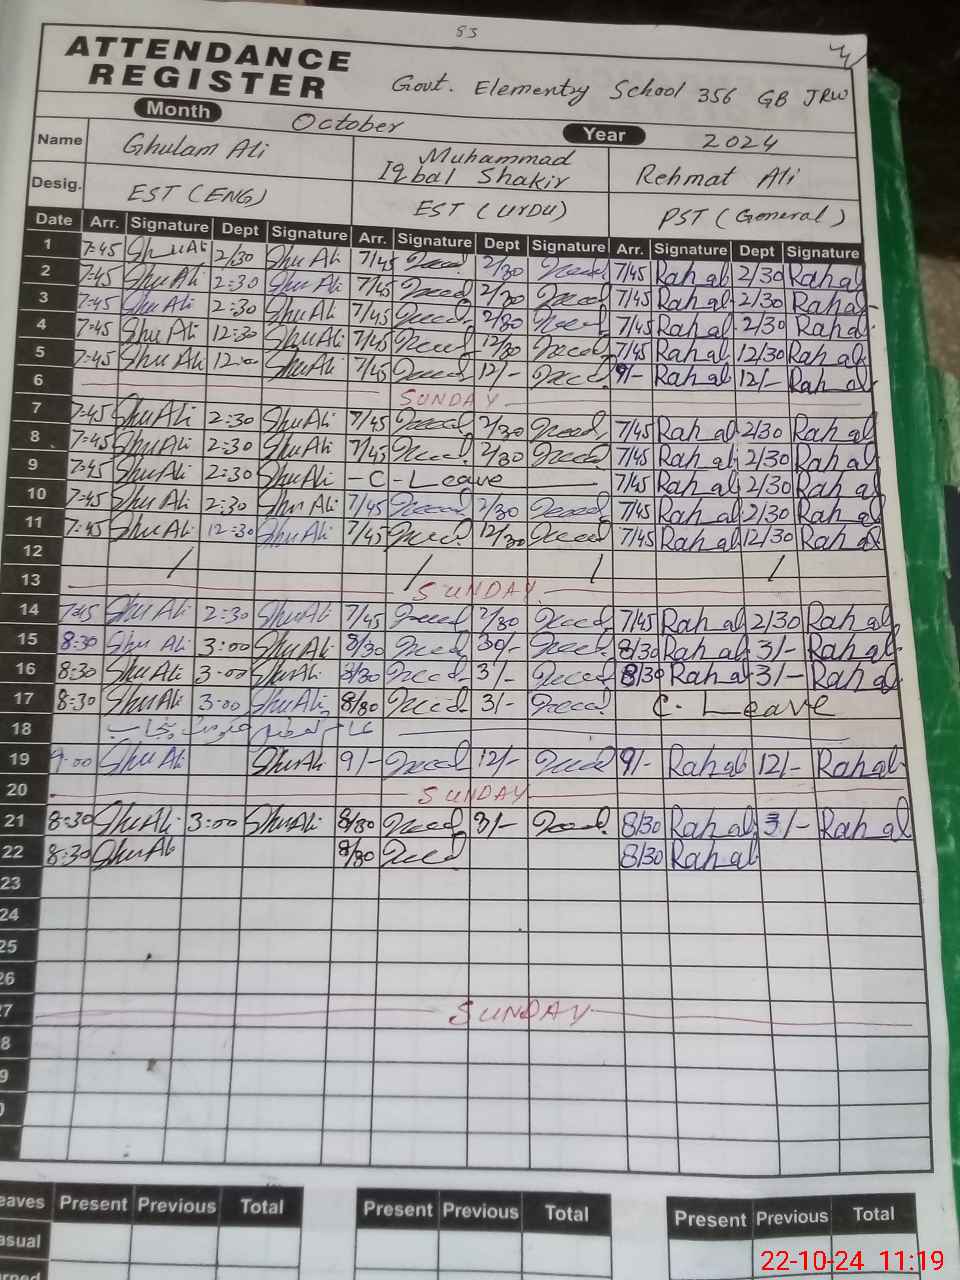 53
ATTENDANCE
REGISTER
Govt. Elementry School 356 GB JRW
Month October Year 2024
Name Ghulam Ali Muhammad Iqbal Shakir Rehmat Ali
Desig. EST (ENG) EST (Urdu) PST (General)
Date Arr. Signature Dept Signature Arr. Signature Dept Signature Arr. Signature Dept Signature
1 7:45 Ghu Ali 2/30 Ghu Ali 7/45 2/30 7/45 Rah al 2/30 Rah al
2 7:45 Ghu Ali 2:30 Ghu Ali 7/45 2/30 7/45 Rah al 2/30 Rah al
3 7:45 Ghu Ali 2:30 Ghu Ali 7/45 2/30 7/45 Rah al 2/30 Rah al
4 7:45 Ghu Ali 12:30 Ghu Ali 7/45 12/30 7/45 Rah al 12/30 Rah al
5 7:45 Ghu Ali 12:00 Ghu Ali 7/45 12/- 9/- Rah al 12/- Rah al
6 SUNDAY
7 7:45 Ghu Ali 2:30 Ghu Ali 7/45 2/30 7/45 Rah al 2/30 Rah al
8 7:45 Ghu Ali 2:30 Ghu Ali 7/45 2/30 7/45 Rah al 2/30 Rah al
9 7:45 Ghu Ali 2:30 Ghu Ali - C - Leave 7/45 Rah al 2/30 Rah al
10 7:45 Ghu Ali 2:30 Ghu Ali 7/45 2/30 7/45 Rah al 2/30 Rah al
11 7:45 Ghu Ali 12:30 Ghu Ali 7/45 12/30 7/45 Rah al 12/30 Rah al
12 / / / /
13 SUNDAY
14 7:45 Ghu Ali 2:30 Ghu Ali 7/45 2/30 7/45 Rah al 2/30 Rah al
15 8:30 Ghu Ali 3:00 Ghu Ali 8/30 30/- 8/30 Rah al 3/- Rah al
16 8:30 Ghu Ali 3:00 Ghu Ali 8/30 3/- 8/30 Rah al 3/- Rah al
17 8:30 Ghu Ali 3:00 Ghu Ali 8/30 3/- C. Leave
18
19 9:00 Ghu Ali Ghu Ali 9/- 12/- 9/- Rah al 12/- Rah al
20 SUNDAY
21 8:30 Ghu Ali 3:00 Ghu Ali 8/30 3/- 8/30 Rah al 3/- Rah al
22 8:30 Ghu Ali 8/30 8/30 Rah al
23
24
25
26
27 SUNDAY
8
9
0
eaves Present Previous Total Present Previous Total Present Previous Total
asual
22-10-24 11:19